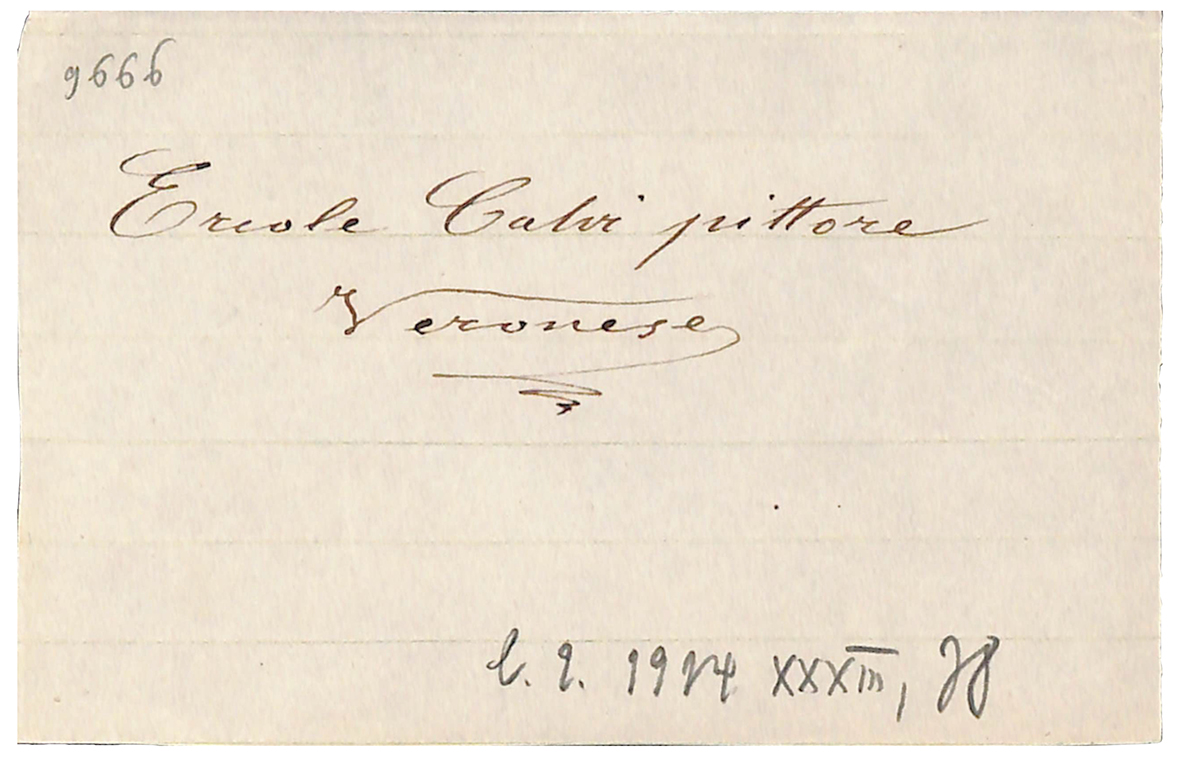 9666
Ercole Calvi pittore
Veronese
1924 XXXIII,